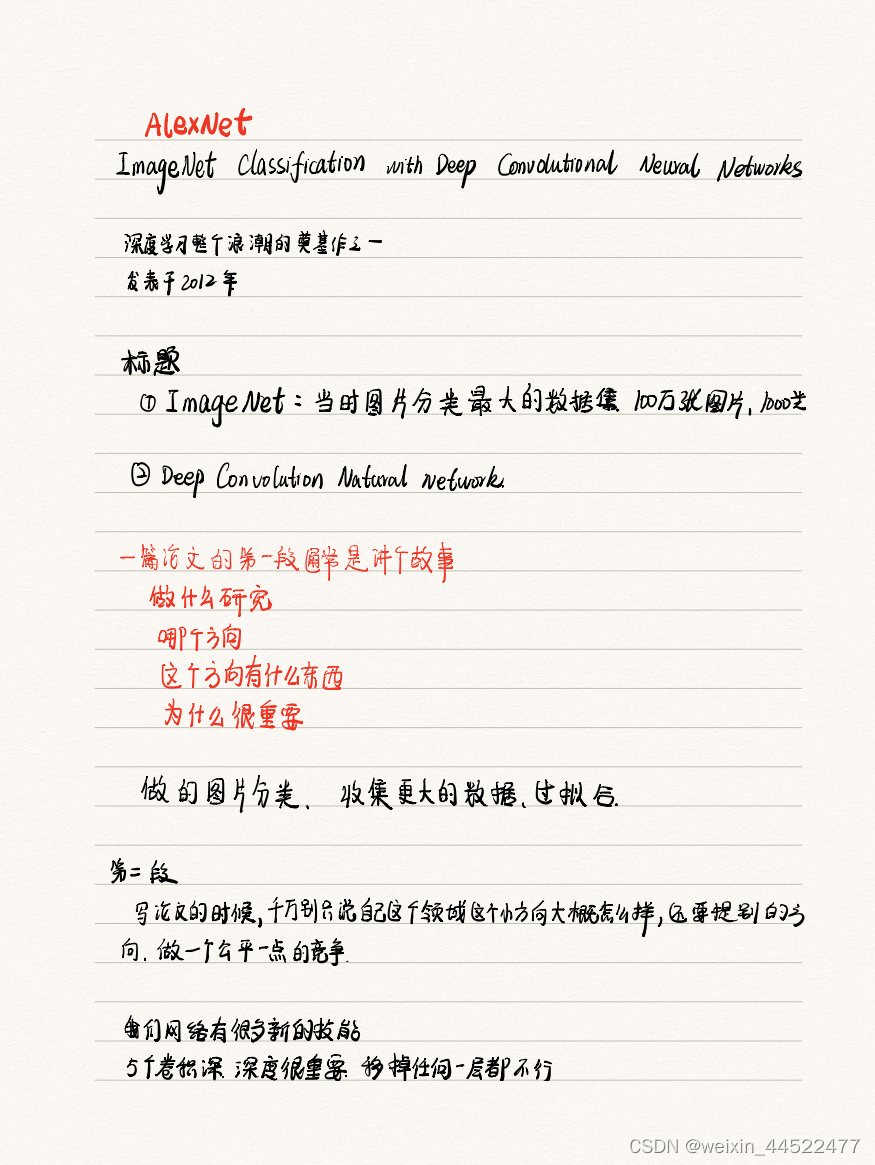 AlexNet
ImageNet Classification with Deep Convolutional Neural Networks
深度学习整个浪潮的奠基作之一
发表于2012年
标题
① ImageNet：当时图片分类最大的数据集 100万张图片，1000类
② Deep Convolution Natural network.
一篇论文的第一段通常是讲个故事
做什么研究
哪个方向
这个方向有什么东西
为什么很重要
做的图片分类、收集更大的数据、过拟合.
第二段
写论文的时候，千万别只说自己这个领域这个小方向大概怎么样，还要提别的方
向. 做一个公平一点的竞争.
我们网络有很多新的技能
5个卷积深. 深度很重要. 移掉任何一层都不行
CSDN @weixin_44522477